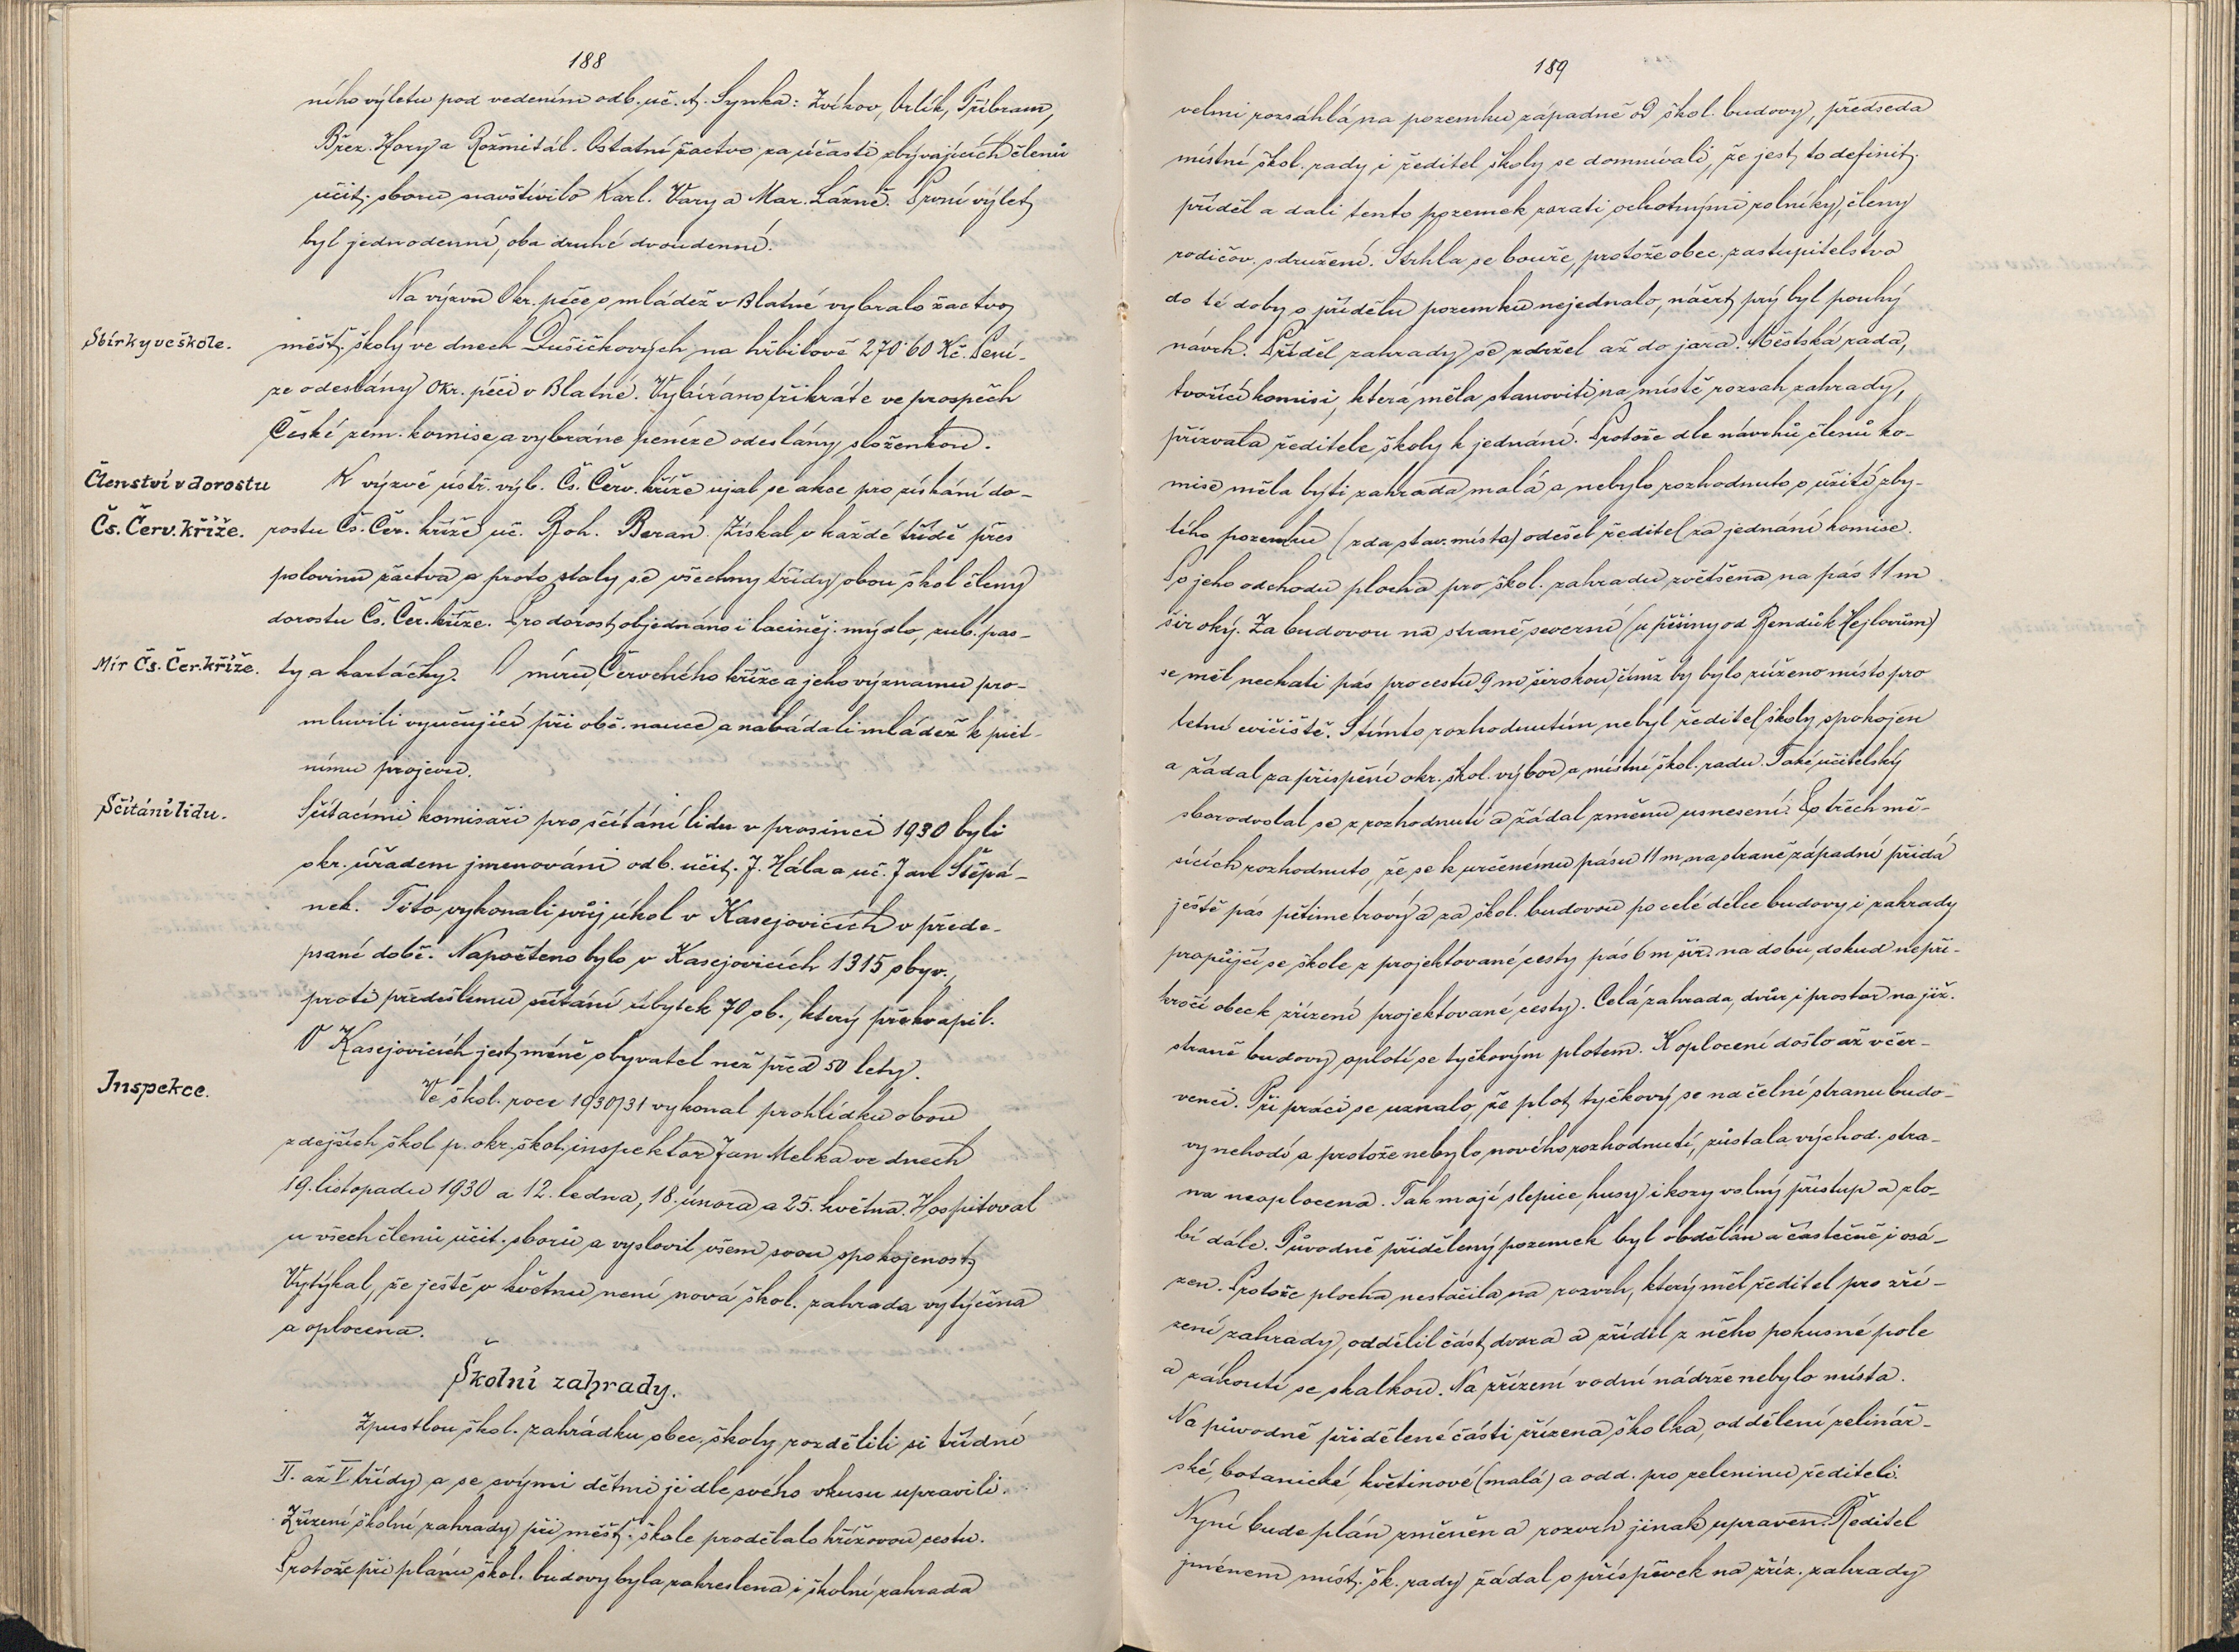 188
ního výletu pod vedením odb. uč. A. Synka: Zvíkov, Orlík, Příbram,
Břez. Hory a Rožmitál. Ostatní žactvo za účasti zbývajících členů
učit. sboru navštívilo Karl. Vary a Mar. Lázně. První výlet
byl jednodenní, oba druhé dvoudenní.
Na výzvu Okr. péče o mládež v Blatné vybralo žactvo
Sbírky ve škole.
měšť. školy ve dnech Dušičkových na hřbitově 270·60 Kč. Pení-
ze odeslány Okr. péči v Blatné. Vybíráno třikráte ve prospěch
České zem. komise a vybrané peníze odeslány složenkou.
Členství v dorostu
K výzvě ústř. výb. Čs. Červ. kříže ujal se akce pro získání do-
Čs. Červ. kříže.
rostu Čs. Čer. kříže uč. Boh. Beran. Získal v každé třídě přes
polovinu žactva a proto staly se všechny třídy obou škol členy
dorostu Čs. Čer. kříže. Pro dorost objednáno i laciněj. mýdlo, zub. pas-
Mír Čs. Čer. kříže.
ty a kartáčky. O míru Červeného kříže a jeho významu pro-
mluvili vyučující při obč. nauce a nabádali mládež k piet-
nímu projevu.
Sčítání lidu.
Sčítacími komisaři pro sčítání lidu v prosinci 1930 byli
okr. úřadem jmenováni odb. učit. J. Hála a uč. Jan Štěpá-
nek. Tito vykonali svůj úkol v Kasejovicích v přede-
psané době. Napočteno bylo v Kasejovicích 1315 obyv.,
proti předešlému sčítání úbytek 70 ob., který překvapil.
V Kasejovicích jest méně obyvatel než před 50 lety.
Inspekce.
Ve škol. roce 1930/31 vykonal prohlídku obou
zdejších škol p. okr. škol. inspektor Jan Melka ve dnech
19. listopadu 1930 a 12. ledna, 18. února a 25. května. Hospitoval
u všech členů učit. sborů a vyslovil všem svou spokojenost.
Vytýkal, že ještě v květnu není nová škol. zahrada vytýčena
a oplocena.
Školní zahrady.
Zpustlou škol. zahrádku obec. školy rozdělili si třídní
II. až V. třídy a se svými dětmi ji dle svého vkusu upravili.
Zřízení školní zahrady při měšť. škole prodělalo křížovou cestu.
Protože při plánu škol. budovy byla zakreslena i školní zahrada
189
velmi rozsáhlá na pozemku západně od škol. budovy, předseda
místní škol. rady i ředitel školy se domnívali, že jest to definit.
příděl a dali tento pozemek zorati ochotnými rolníky, členy
rodičov. sdružení. Strhla se bouře, protože obec. zastupitelstvo
do té doby o přídělu pozemku nejednalo, náčrt prý byl pouhý
návrh. Příděl zahrady se zdržel až do jara. Městská rada,
tvořící komisi, která měla stanoviti na místě rozsah zahrady,
přizvala ředitele školy k jednání. Protože dle návrhů členů ko-
mise měla býti zahrada malá a nebylo rozhodnuto o užití zby-
lého pozemku (zda stav. místa) odešel ředitel za jednání komise.
Po jeho odchodu plocha pro škol. zahradu zvětšena na pás 11 m
široký. Za budovou na straně severní (u pěšiny od Bendů k Hejlovům)
se měl nechati pás pro cestu 9 m širokou, čímž by bylo zúženo místo pro
letní cvičiště. S tímto rozhodnutím nebyl ředitel školy spokojen
a žádal za přispění okr. škol. výbor a místní škol. radu. Také učitelský
sbor odvolal se z rozhodnutí a žádal změnu usnesení. Po třech mě-
sících rozhodnuto, že se k určenému pásu 11 m na straně západní přidá
ještě pás pětimetrový a za škol. budovou po celé délce budovy i zahrady
propůjčí se škole z projektované cesty pás 6 m šir. na dobu, dokud nepři-
kročí obec k zřízení projektované cesty. Celá zahrada, dvůr i prostor na již.
straně budovy oplotí se tyčkovým plotem. K oplocení došlo až v čer-
venci. Při práci se uznalo, že plot tyčkový se na čelní stranu budo-
vy nehodí a protože nebylo nového rozhodnutí, zůstala východ. stra-
na neoplocena. Tak mají slepice, husy i kozy volný přístup a zlo-
bí dále. Původně přidělený pozemek byl obdělán a částečně i osá-
zen. Protože plocha nestačila na rozvrh, který měl ředitel pro zří-
zení zahrady, oddělil část dvora a zřídil z něho pokusné pole
a zákoutí se skalkou. Na zřízení vodní nádrže nebylo místa.
Na původně přidělené části zřízena školka, oddělení zelinář-
ské, botanické, květinové (malá) a odd. pro zeleninu řediteli.
Nyní bude plán změněn a rozvrh jinak upraven. Ředitel
jménem míst. šk. rady žádal o příspěvek na zříz. zahrady